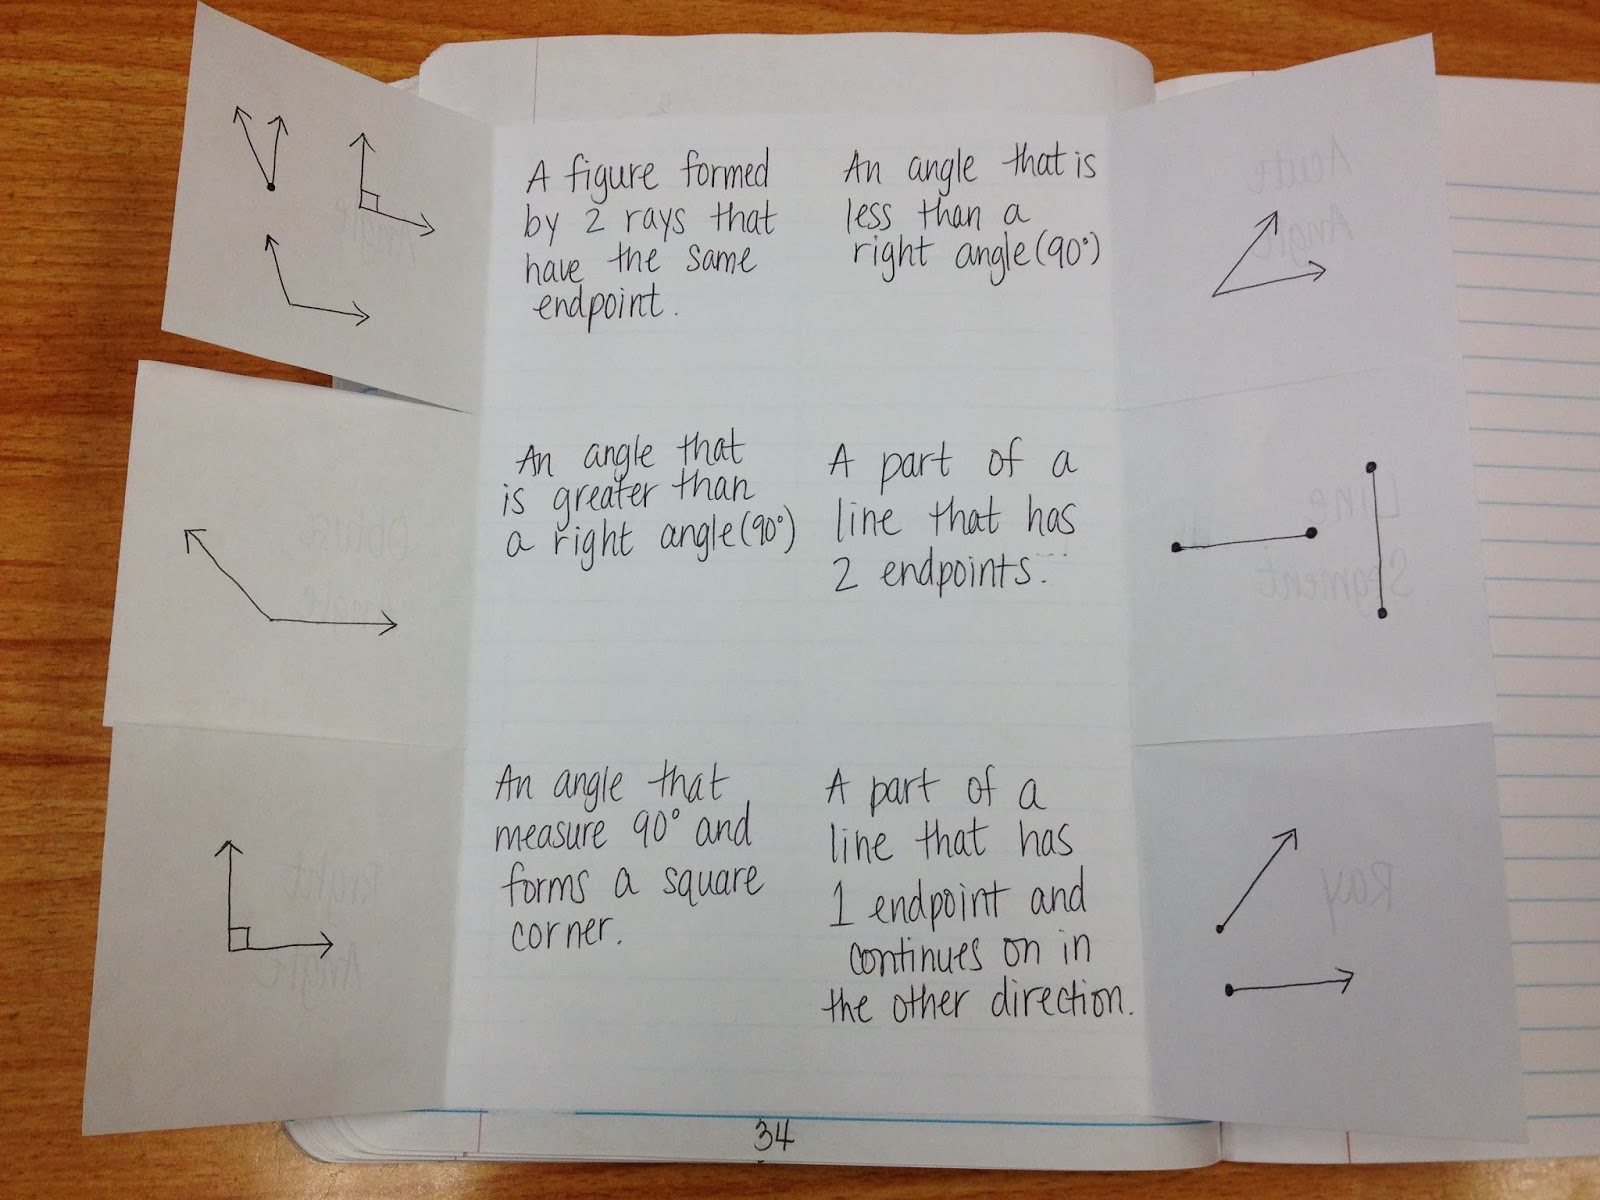 A figure formed
by 2 rays that
have the same
endpoint.
An angle that is
less than a
right angle (90°)
An angle that
is greater than
a right angle (90°)
A part of a
line that has
2 endpoints.
An angle that
measure 90° and
forms a square
corner.
A part of a
line that has
1 endpoint and
continues on in
the other direction.
Angle
Acute
Angle
Obtuse
Angle
Line
Segment
Right
Angle
Ray
34